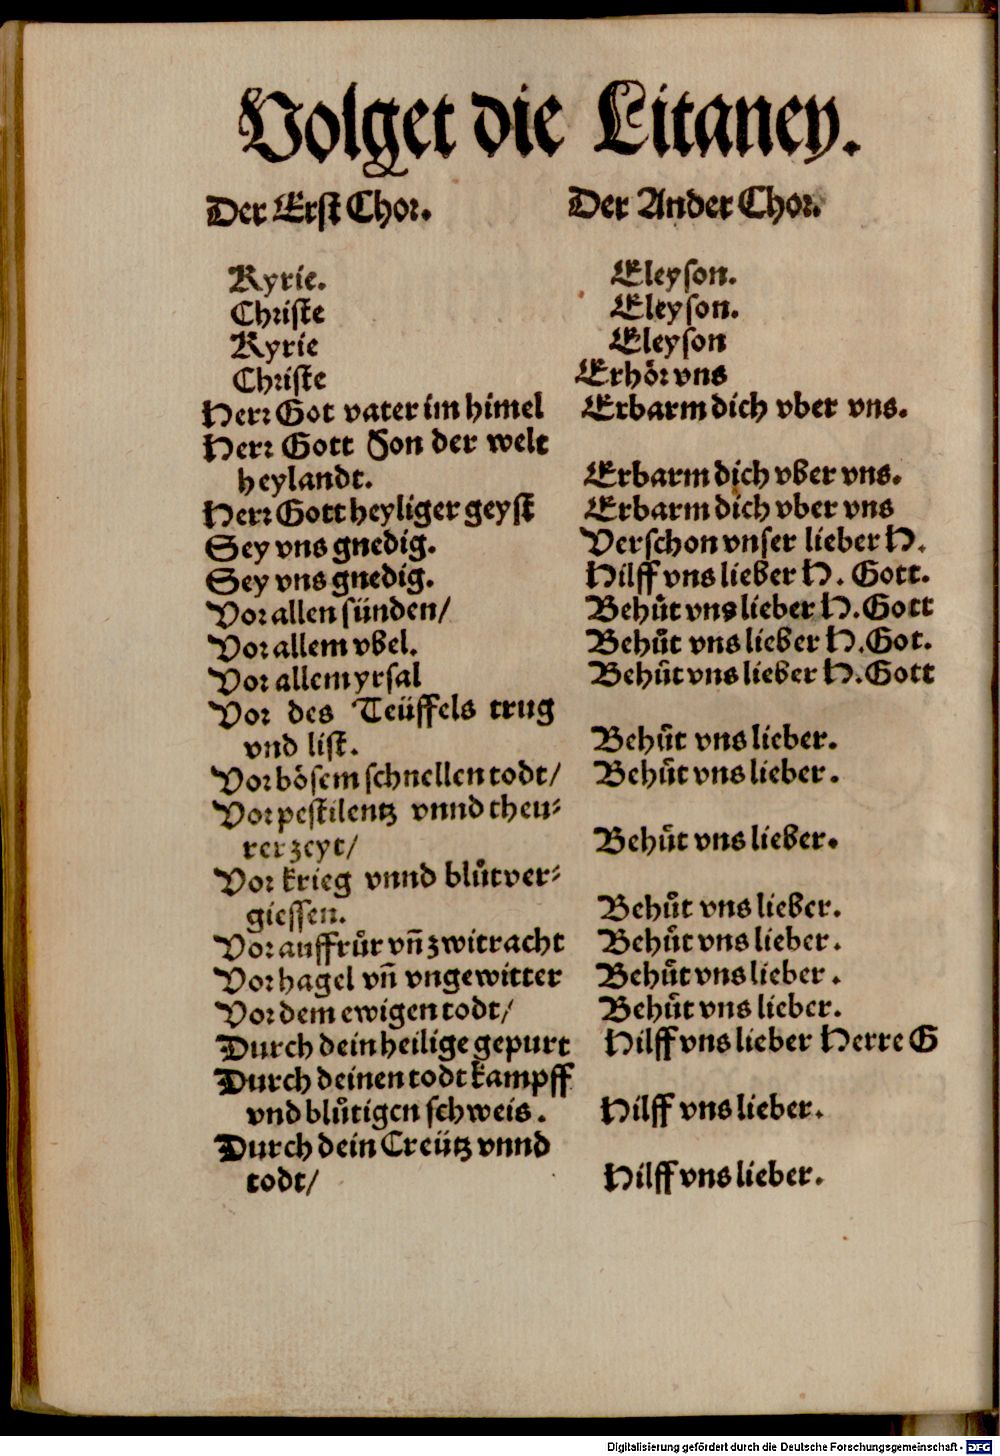 Volget die Litaney.
Der Erst Chor. Der Ander Chor.
Kyrie. Eleyson.
Christe Eleyson.
Kyrie Eleyson
Christe Erhör vns
Herr Got vater im himel Erbarm dich vber vns.
Herr Gott Son der welt
heylandt. Erbarm dich vber vns.
Herr Gott heyliger geyst Erbarm dich vber vns
Sey vns gnedig. Verschon vnser lieber H.
Sey vns gnedig. Hilff vns lieber H. Gott.
Vor allen sünden/ Behuͤt vns lieber H. Gott
Vor allem vbel. Behuͤt vns lieber H. Got.
Vor allem yrsal Behuͤt vns lieber H. Gott
Vor des Teüffels trug
vnd list. Behuͤt vns lieber.
Vor bösem schnellen todt/ Behuͤt vns lieber.
Vor pestilentz vnnd theu-
rer zeyt/ Behuͤt vns lieber.
Vor krieg vnnd bluͦtver-
giessen. Behuͤt vns lieber.
Vor auffruͦr vñ zwitracht Behuͤt vns lieber.
Vor hagel vñ vngewitter Behuͤt vns lieber.
Vor dem ewigen todt/ Behuͤt vns lieber.
Durch dein heilige gepurt Hilff vns lieber Herre G
Durch deinen todt kampff
vnd bluͦtigen schweis. Hilff vns lieber.
Durch dein Creütz vnnd
todt/ Hilff vns lieber.
Digitalisierung gefördert durch die Deutsche Forschungsgemeinschaft - DFG